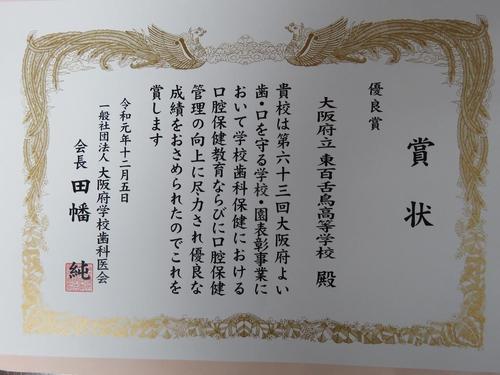 賞状
優良賞
大阪府立東百舌鳥高等学校 殿
貴校は第六十三回大阪府よい
歯・口を守る学校・園表彰事業に
おいて学校歯科保健における
口腔保健教育ならびに口腔保健
管理の向上に尽力され優良な
成績をおさめられたのでこれを
賞します
令和元年十二月五日
一般社団法人 大阪府学校歯科医会
会長 田幡 純